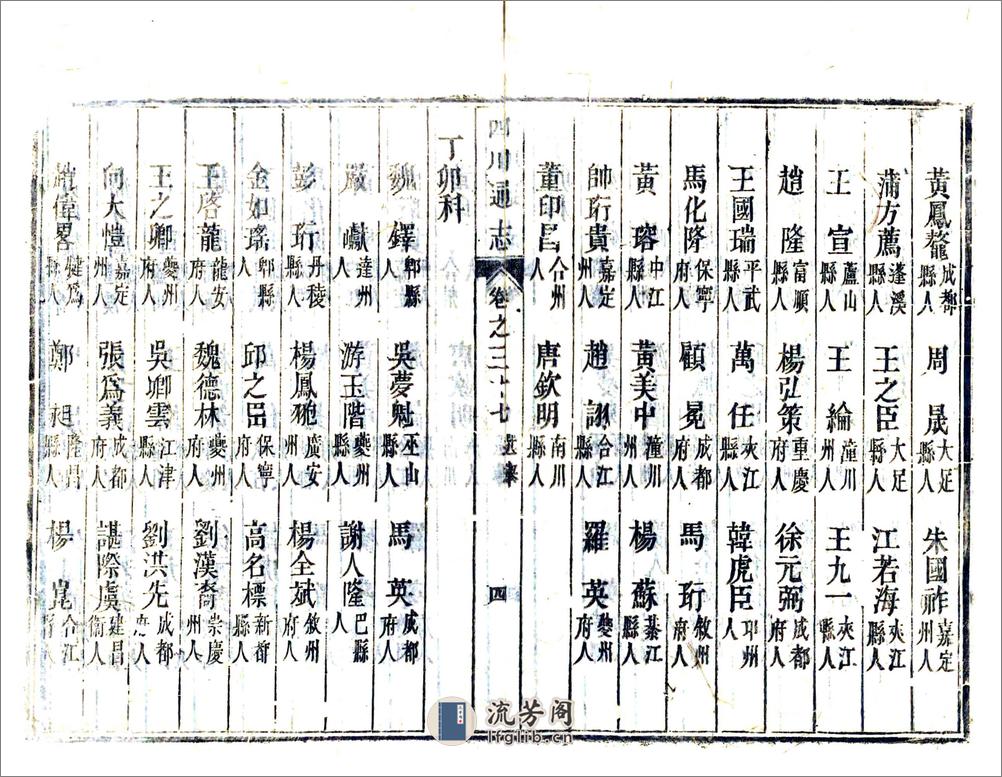 黃鳳鰲成都縣人 周晟大足縣人 朱國祚嘉定州人
蒲方薦蓬溪縣人 王之臣大足縣人 江若海夾江縣人
王宣蘆山縣人 王綸潼川州人 王九一夾江縣人
趙隆富順縣人 楊弘策重慶府人 徐元弼成都府人
王國瑞平武縣人 萬任夾江縣人 韓虎臣邛州人
馬化隆保寧府人 顧冕成都府人 馬珩敘州府人
黃瑢中江縣人 黃美中潼川州人 楊蘇綦江縣人
帥珩貴嘉定州人 趙詡合江縣人 羅英夔州府人
董印昌合州人 唐欽明南川縣人
四川通志 卷之三十七 選舉 四
丁卯科
魏鐸郫縣人 吳夢魁巫山縣人 馬英成都府人
嚴巘達州人 游玉階夔州縣人 謝人隆巴縣人
彭珩丹稜縣人 楊鳳廣安州人 楊全斌敘州府人
金如瑤郫縣人 邱之臣保寧府人 高名標新都縣人
王啓龍龍安府人 魏德林夔州府人 劉漢裔崇慶州人
王之卿夔州府人 吳卿雲江津縣人 劉洪先成都人
向大愷嘉定州人 張爲義成都府人 諶際虞建昌衛人
趙偉畧犍爲縣人 鄭昶隆昌縣人 楊崑合江縣人
流芳阁
lfglib.cn